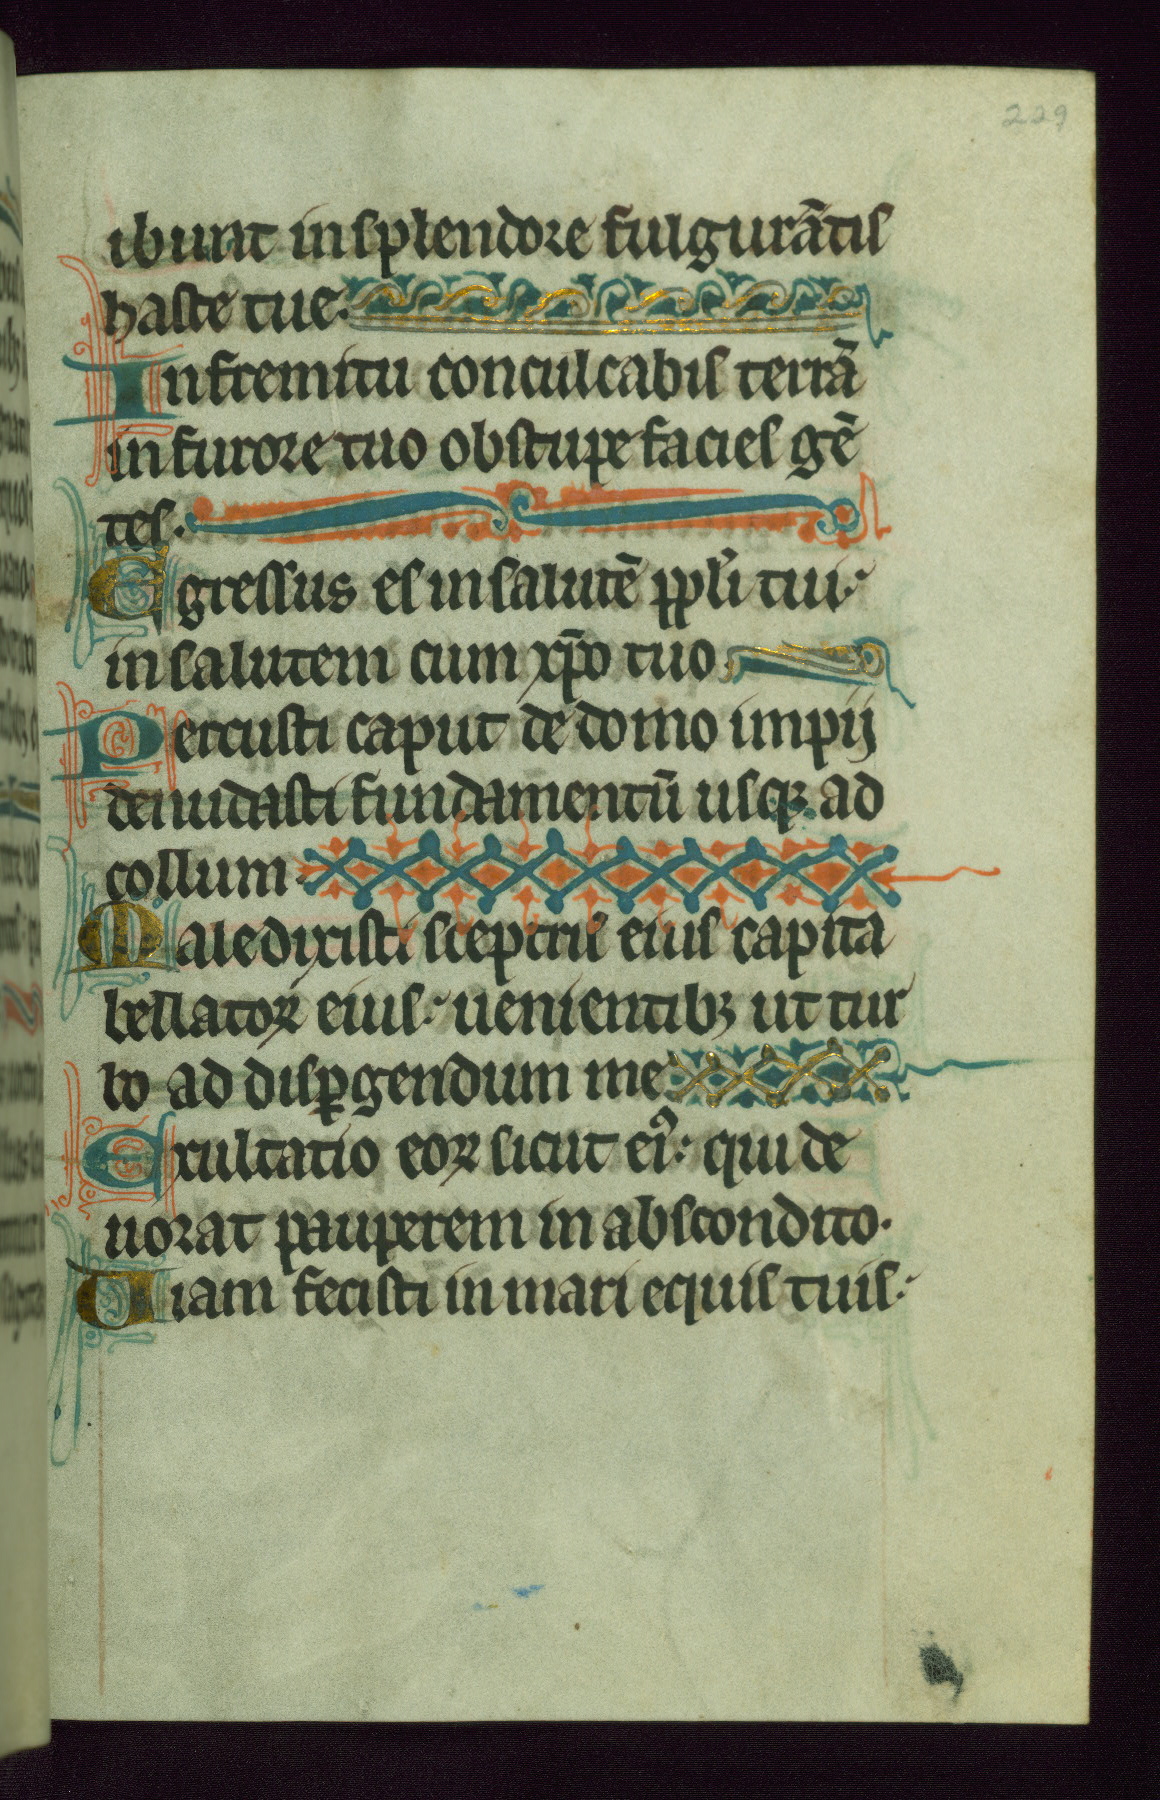 229
ibunt in splendore fulgurātis
haste tue.
In fremitu conculcabis terrā
in furore tuo obstupefacies gē
tes.
Egressus es in salutē ppl'i tui.
in salutem cum xp̄o tuo.
Percusti caput de domo impij
denudasti fundamentū usqꝫ ad
collum.
Maledixisti sceptris eius capita
bellatoꝝ eius. uenientibꝫ ut tur
bo ad disꝑgendum me
Exultatio eoꝝ sicut eiꝰ: qui de
uorat pauperem in abscondito.
Uiam fecisti in mari equis tuis.